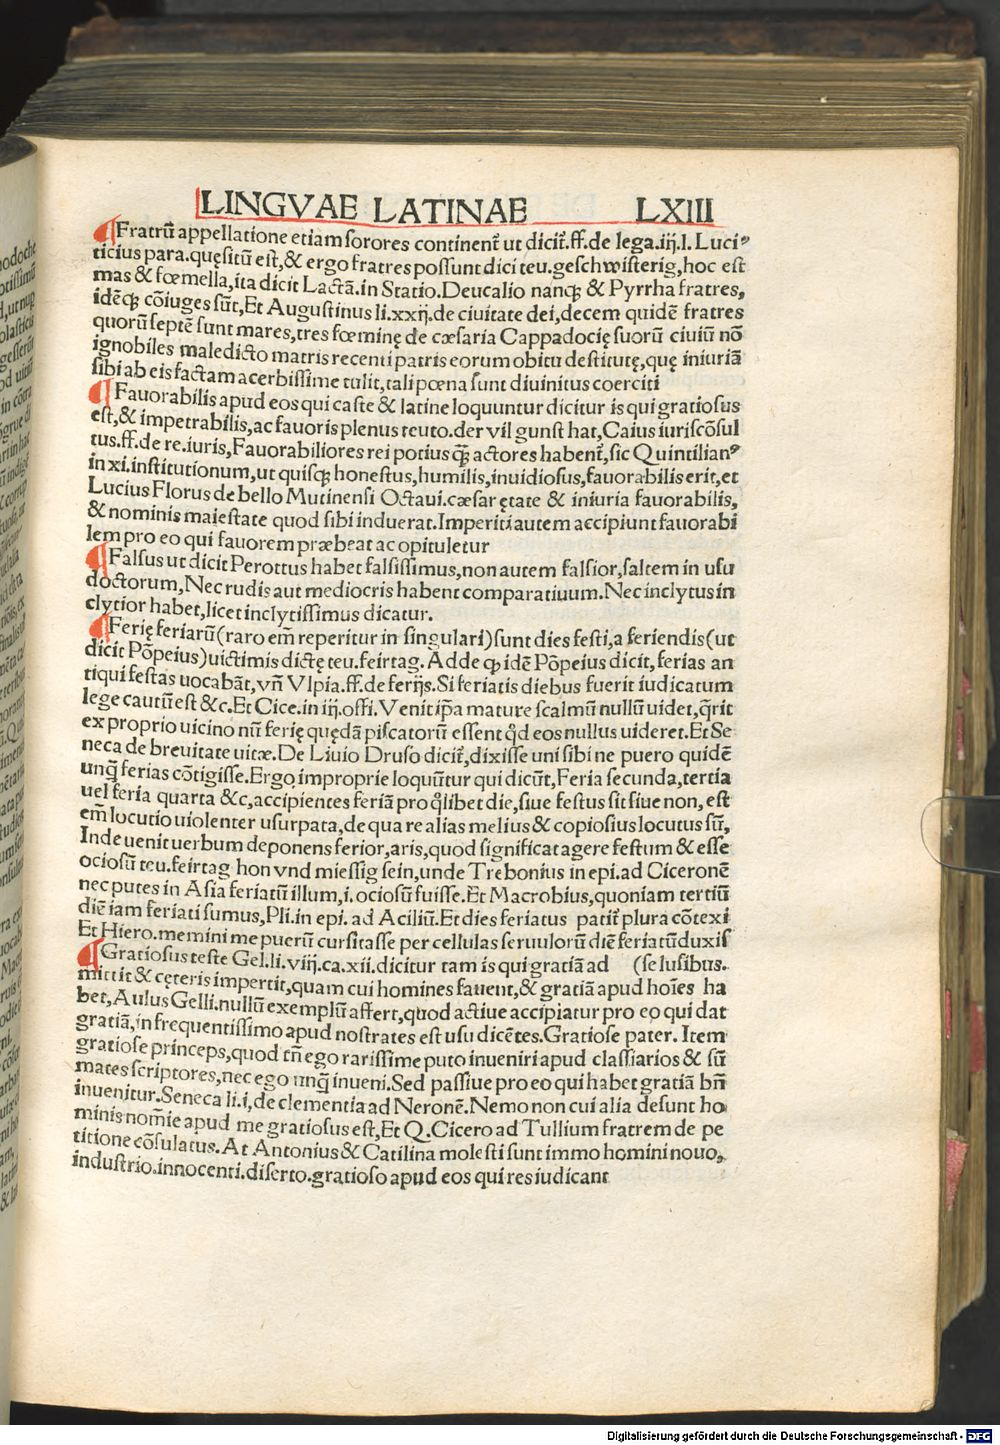 LINGVAE LATINAE LXIII
Fratrũ appellatione etiam sorores continent̃ ut dicit̃.ff.de lega.iij.l. Luci⁹
ticius para.quęsitũ est,& ergo fratres possunt dici teu.geschwisterig,hoc est
mas & fœmella,ita dicit Lactã.in Statio.Deucalio nanqꝫ & Pyrrha fratres,
idẽqꝫ cõiuges sũt,Et Augustinus li.xxij.de ciuitate dei,decem quidẽ fratres
quorũ septẽ sunt mares,tres fœminę de cæsaria Cappadocię suorũ ciuiũ nõ
ignobiles maledicto matris recenti patris eorum obitu destitutę,quę iniuriã
sibi ab eis factam acerbissime tulit,tali pœna sunt diuinitus coerciti
Fauorabilis apud eos qui caste & latine loquuntur dicitur is qui gratiosus
est,& impetrabilis,ac fauoris plenus teuto.der vil gunst hat,Caius iuriscõsul
tus.ff.de re.iuris,Fauorabiliores rei potius q̃ꝫ actores habent̃,sic Quintilian⁹
in xi.institutionum,ut quisqꝫ honestus,humilis,inuidiosus,fauorabilis erit,et
Lucius Florus de bello Mutinensi Octaui.cæsar ętate & iniuria fauorabilis,
& nominis maiestate quod sibi induerat.Imperiti autem accipiunt fauorabi
lem pro eo qui fauorem præbeat ac opituletur
Falsus ut dicit Perottus habet falsissimus,non autem falsior,saltem in usu
doctorum,Nec rudis aut mediocris habent comparatiuum.Nec inclytus in
clytior habet,licet inclytissimus dicatur.
Ferię feriarũ(raro em̃ reperitur in singulari)sunt dies festi,a feriendis(ut
dicit Põpeius)uictimis dictę teu.feirtag. Adde qꝫ idẽ Põpeius dicit,ferias an
tiqui festas uocabãt,vñ Vlpia.ff.de ferijs.Si feriatis diebus fuerit iudicatum
lege cautũ est &c.Et Cice.in iij.offi.Venit ip̃a mature scalmũ nullũ uidet,q̃rit
ex proprio uicino nũ ferię quędã piscatorũ essent q̃d eos nullus uideret.Et Se
neca de breuitate uitæ.De Liuio Druso dicit̃,dixisse uni sibi ne puero quidẽ
unq̃ ferias cõtigisse.Ergo improprie loquũtur qui dicũt,Feria secunda,tertia
uel feria quarta &c,accipientes feriã pro q̃libet die,siue festus sit siue non,est
em̃ locutio uiolenter usurpata,de qua re alias melius & copiosius locutus sũ,
Inde uenit uerbum deponens ferior,aris,quod significat agere festum & esse
ociosũ teu.feirtag hon vnd miessig sein,unde Trebonius in epi.ad Ciceronẽ
nec putes in Asia feriatũ illum,i.ociosũ fuisse.Et Macrobius,quoniam tertiũ
diẽ iam feriati sumus,Pli.in epi.ad Aciliũ.Et dies feriatus patit̃ plura cõtexi
Et Hiero.memini me puerũ cursitasse per cellulas seruulorũ diẽ feriatũ duxis
Gratiosus teste Gel.li.viij.ca.xii.dicitur tam is qui gratiã ad (se lusibus.
mittit & cęteris impertit,quam cui homines fauent,& gratiã apud hoĩes ha
bet,Aulus Gelli.nullũ exemplũ affert,quod actiue accipiatur pro eo qui dat
gratiã,in frequentissimo apud nostrates est usu dicẽtes.Gratiose pater. Item
gratiose princeps,quod tñ ego rarissime puto inueniri apud classiarios & sũ
mates scriptores,nec ego unq̃ inueni.Sed passiue pro eo qui habet gratiã bñ
inuenitur.Seneca li.i,de clementia ad Neronẽ.Nemo non cui alia desunt ho
minis nom̃ie apud me gratiosus est,Et Q.Cicero ad Tullium fratrem de pe
titione cõsulatus.At Antonius & Catilina molesti sunt immo homini nouo,
industrio.innocenti.diserto.gratioso apud eos qui res iudicant
Digitalisierung gefördert durch die Deutsche Forschungsgemeinschaft - DFG